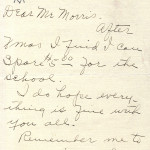 Dear Mr Morris.
After
Xmas I find I can
spare $5.00 for the
school.
I do hope every-
thing is fine with
you all.
Remember me to